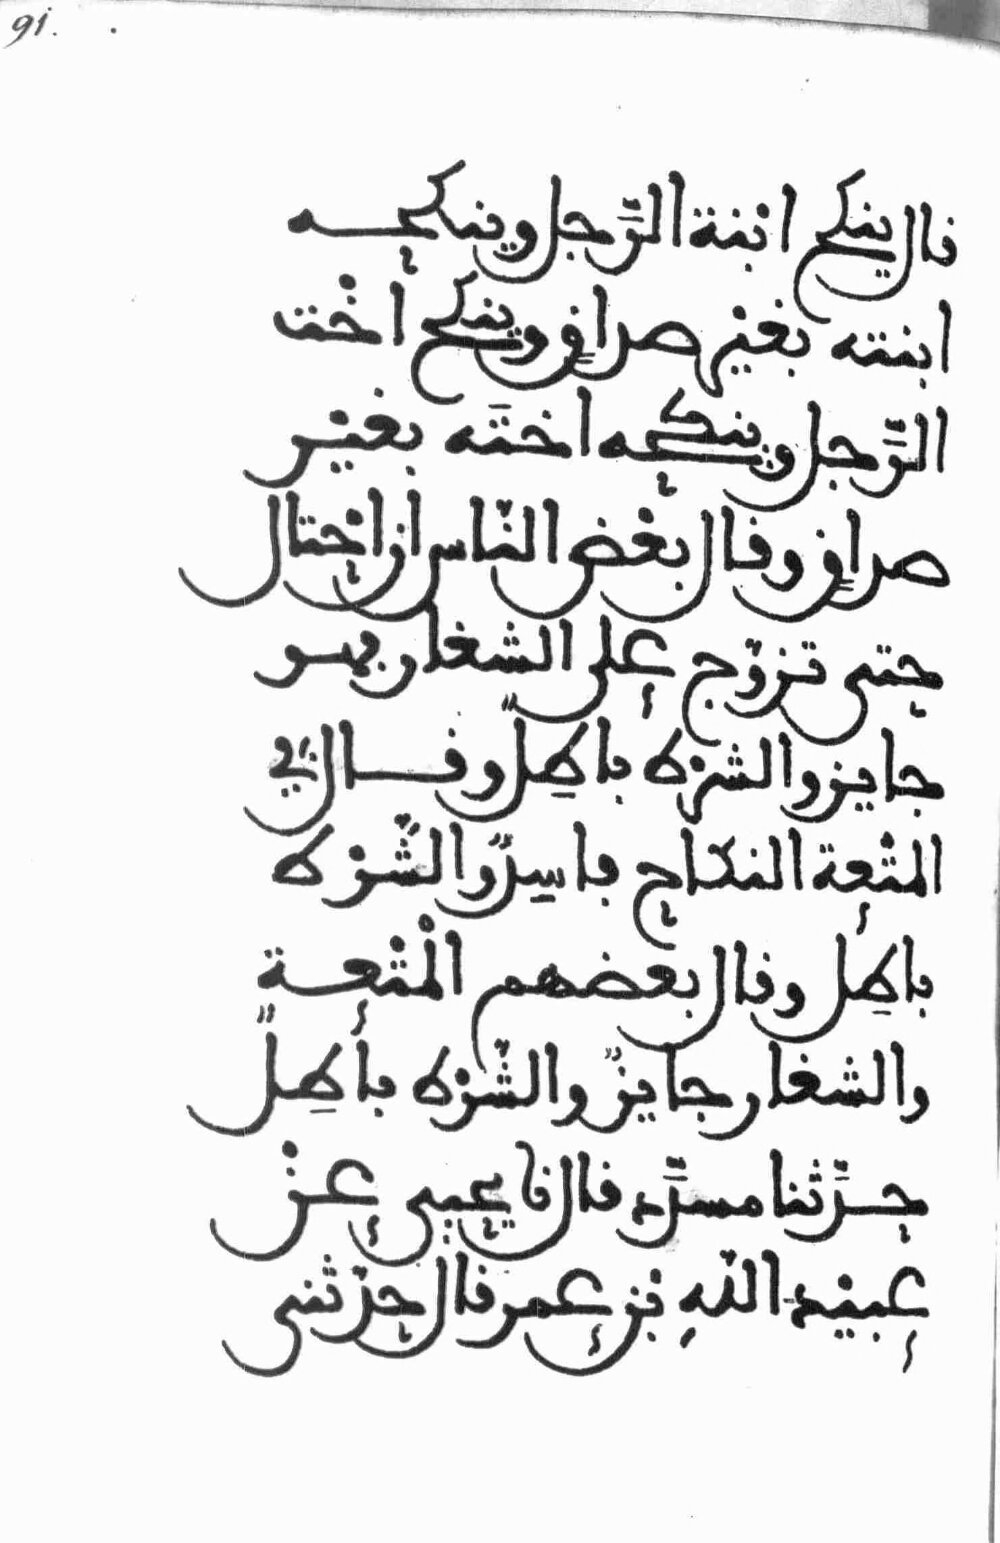 91.
قال ينكح ابْنة الرَّجل وينكحه
ابنته بغيْر صداقٍ وينكح أخْت
الرَّجل وينكحه اختَه بغيْر
صداقٍ وقال بعْض النّاس ان احْتال
حتى تزوّج على الشغار فهو
جايز والشرْط باطِلٌ وقال في
المتْعة النكاح فاسِدٌ والشّرْط
باطِل وقال بعضهم الْمتْعة
والشغار جايزٌ والشّرْط باطِلٌ
حدَّثنا مسدَّد قال نا يحيى عنْ
عبيْد اللّهِ بْن عمر قال حدّثني